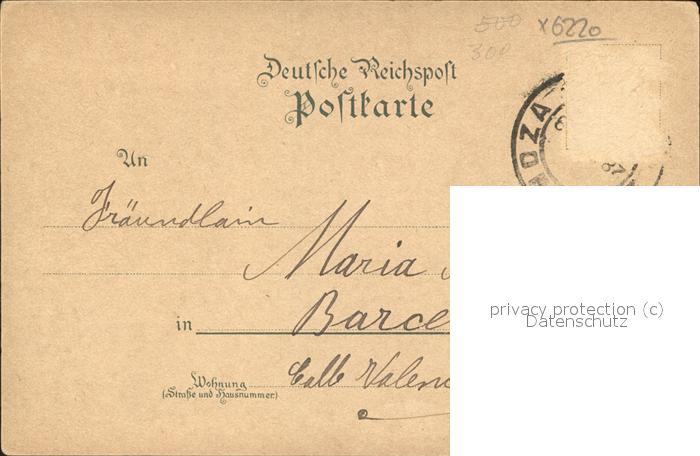 500 x6220
300
Deutsche Reichspost
Postkarte
An
Fräundlain
Maria
in Barce
Wohnung Calle Valenc
(Straße und Hausnummer)
privacy protection (c)
Datenschutz